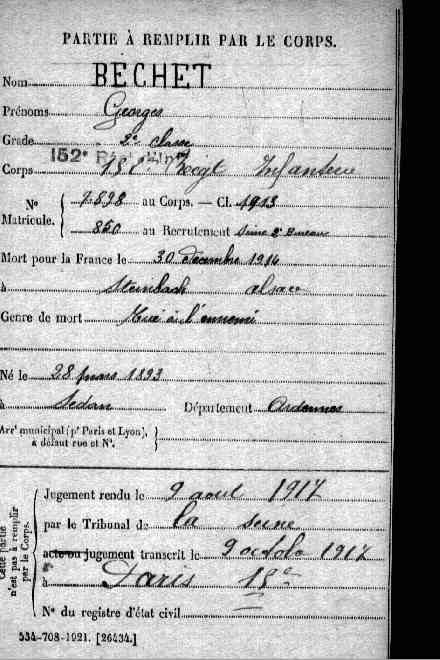 PARTIE À REMPLIR PAR LE CORPS.
Nom BECHET
Prénoms Georges
Grade 2e classe
Corps 152e Regt Infanterie
No Matricule. 7.898 au Corps. — Cl. 1913
850 au Recrutement Seine 2e Bureau
Mort pour la France le 30 décembre 1914
à Steinbach alsace
Genre de mort Tué à l'ennemi
Né le 28 mars 1893
à Sedan Département Ardennes
Arrt municipal (pr Paris et Lyon), à défaut rue et No.
Cette partie n'est pas à remplir par le Corps.
Jugement rendu le 9 aout 1917
par le Tribunal de la seine
acte ou jugement transcrit le 9 octobre 1917
à Paris 18e
No du registre d'état civil
534-708-1921. [26434.]